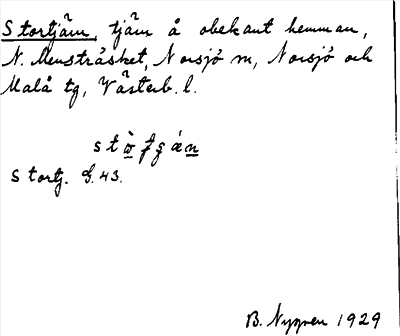 Stortjärn, tjärn å obekant hemman,
N. Mensträsket, Norsjö sn, Norsjö och
Malå tg, Västerb. l.
Stortj. G.43.
B. Nygren 1929